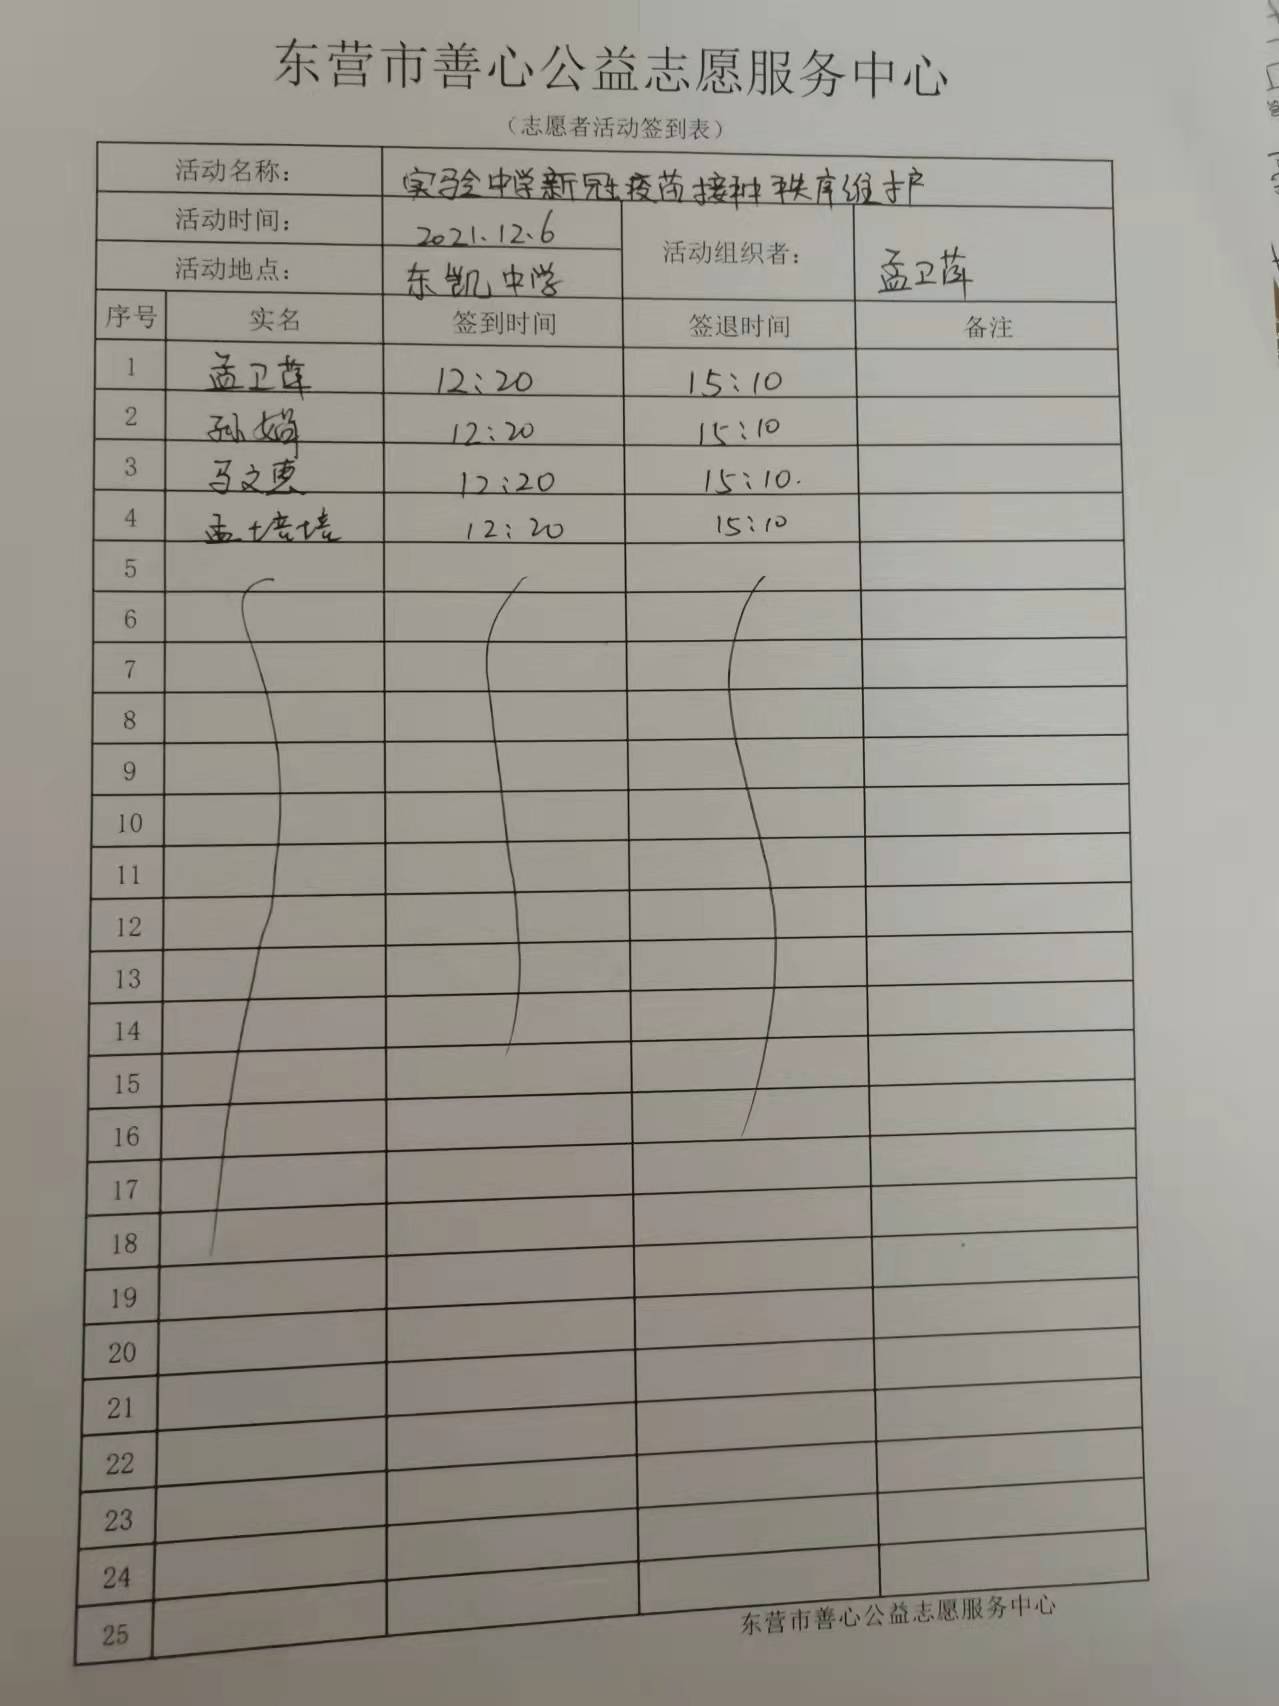 东营市善心公益志愿服务中心
（志愿者活动签到表）
活动名称： 实验中学新冠疫苗接种秩序维护
活动时间： 2021.12.6 活动组织者： 孟卫萍
活动地点： 东凯中学
序号 实名 签到时间 签退时间 备注
1 孟卫萍 12:20 15:10
2 孙娟 12:20 15:10
3 马文惠 12:20 15:10.
4 孟培培 12:20 15:10
5
6
7
8
9
10
11
12
13
14
15
16
17
18
19
20
21
22
23
24
25
东营市善心公益志愿服务中心